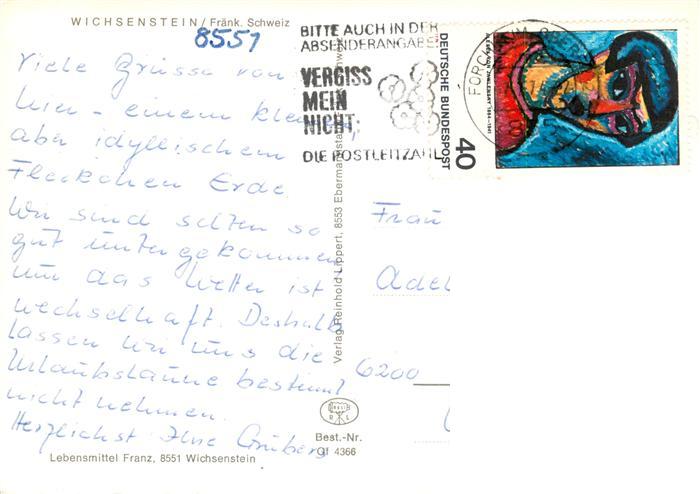 WICHSENSTEIN / Fränk. Schweiz
8551
Viele Grüsse von
hier - einem kleinen
aber idyllischem
Fleckchen Erde.
Wir sind selten so
gut untergekommen,
nur das Wetter ist
wechselhaft. Deshalb
lassen wir uns die
Urlaubslaune bestimmt
nicht nehmen.
Herzlichst Ihre Grubers
Lebensmittel Franz, 8551 Wichsenstein
Verlag Reinhold Lippert, 8553 Ebermannstadt
Best.-Nr.
Gf 4366
BITTE AUCH IN DER
ABSENDERANGABE:
VERGISS
MEIN
NICHT:
DIE POSTLEITZAHL
DEUTSCHE BUNDESPOST
40
FORCHHEIM
Frau
Adel
6200